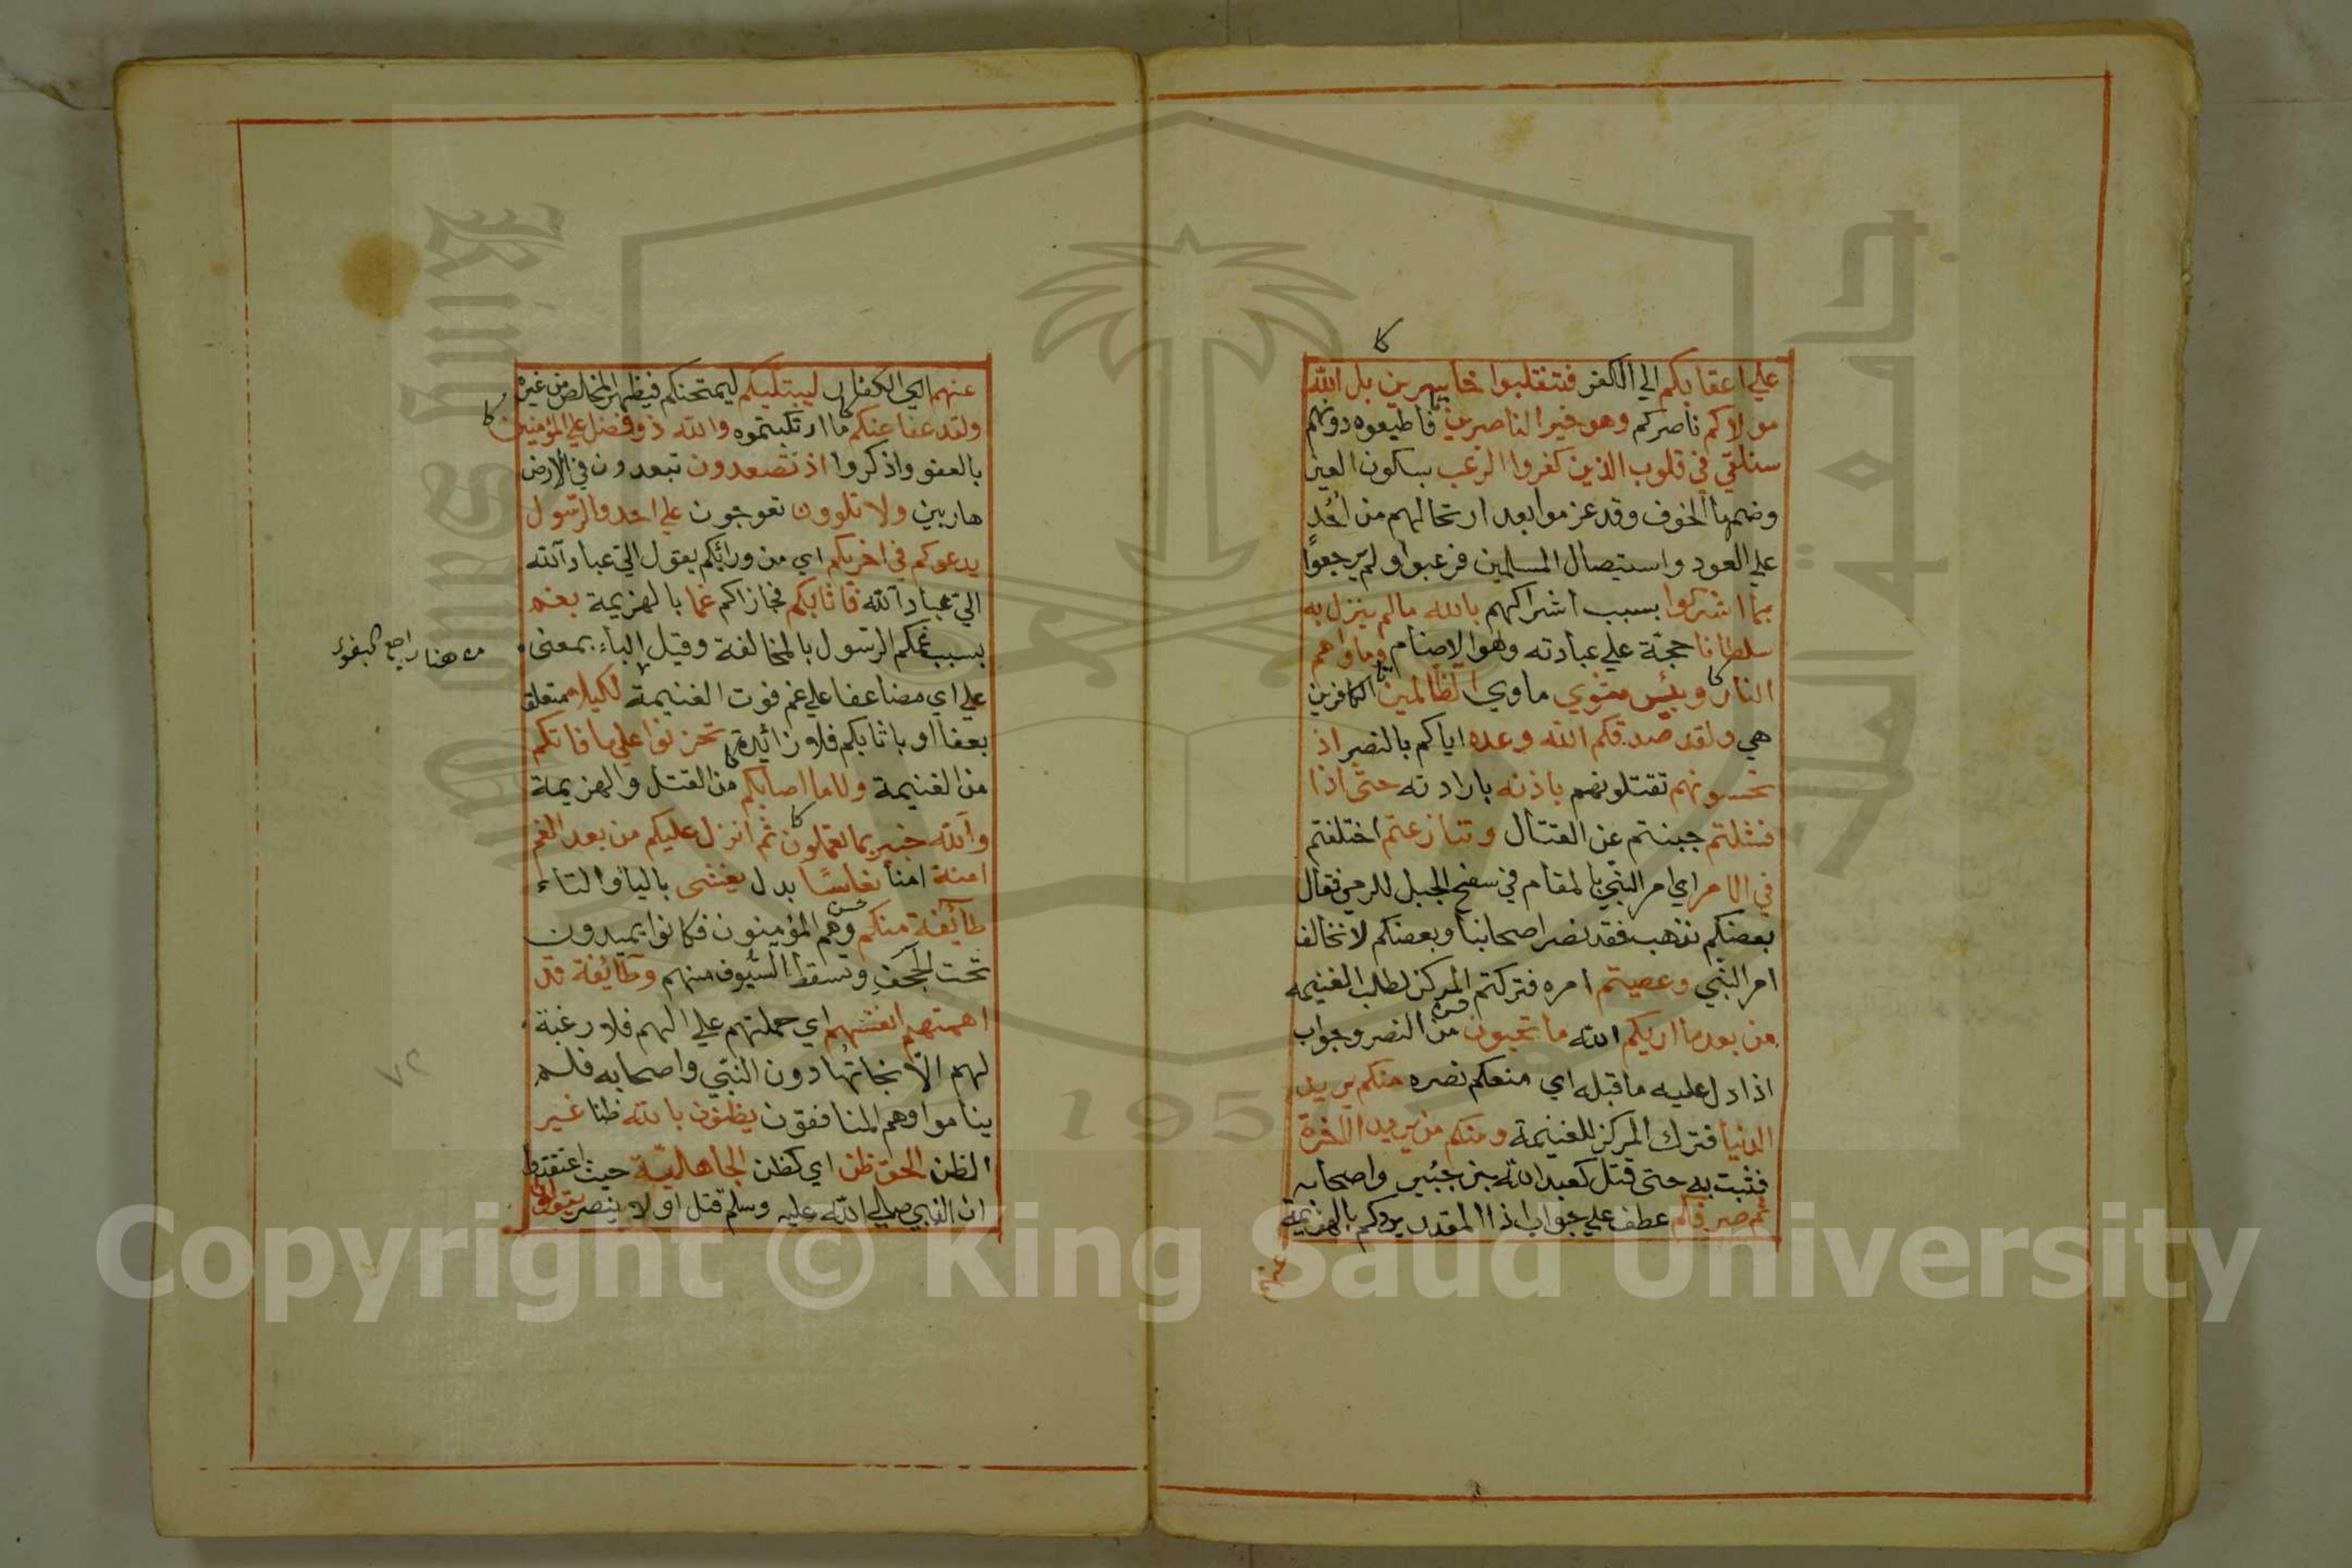 علي اعقابكم الي الكفر فتنقلبوا خاسرين بل الله
مولاكم ناصركم وهو خير الناصرين فاطيعوه دونهم
سنلقي في قلوب الذين كفروا الرعب بسكون العين
وضمها الخوف وقد عزموا بعد ارتحالهم من احُد
علي العود واستيصال المسلمين فرعبوا ولم يرجعوا
بما اشركوا بسبب اشراكهم بالله مالم ينزل به
سلطانا حجّة علي عبادته وهو الاصنام وماواهم
النار وبئس مثوي ماوي الظالمين الكافرين
هي ولقد صدقكم الله وعده اياكم بالنصر اذ
تحسونهم تقتلونهم باذنه بارادته حتى اذا
فشلتم جبنتم عن القتال وتنازعتم اختلفتم
في الامر اي امر النبي بالمقام في سفح الجبل للرمي فقال
بعضكم نذهب فقد نصر اصحابنا وبعضكم لا نخالف
امر النبي وعصيتم امره فتركتم المركز لطلب الغنيمه
من بعد ما اريكم الله ما تحبون من النصر وجواب
اذا دل عليه ما قبله اي منعكم نصره منكم من يريد
الدنيا فترك المركز للغنيمة ومنكم من يريد الاخرة
فثبت به حتى قتل كعبد الله بن جبُير واصحابه
ثم صرفكم عطف علي جواب اذا المقدر يردكم بالهزيمة
عنهم
عنهم اي الكفار ليبتليكم ليمتحنكم فيظهر المخالص من غيره
ولقد عفا عنكم ما ارتكبتموه والله ذو فضل علي المؤمنين
بالعفو واذكروا اذ تصعدون تبعدون في الارض
هاربين ولا تلوون تعوجون علي احد والرّسول
يدعوكم في اخريكم اي من ورائكم يقول اليّ عباد الله
اليّ عباد الله فاثابكم فجازاكم غما بالهزيمة بغم
بسبب غمكم الرسول بالمخالفة وقيل الباء بمعنى
علي اي مضاعفا علي غم فوت الغنيمة لكيلا متعلق
بعفا او باثابكم فلا زائدة تحزنوا علي ما فاتكم
من الغنيمة ولا ما اصابكم من القتل والهزيمة
والله خبير بما تعملون ثم انزل عليكم من بعد الغم
امنة امنا نعاسًا بدل يغشى بالياء والتاء
طائفة منكم وهم المؤمنون فكانوا يميدون
تحت الحجف وتسقط السّيوف منهم وطائفة قد
اهمتهم انفسهم اي حملتهم علي الهم فلا رغبة
لهم الّا نجاتها دون النبّي واصحابه فلم
يناموا وهم المنافقون يظنون بالله ظنا غير
الظن الحق ظن اي كظن الجاهلية حيث اعتقدوا
ان النبي صلي الله عليه وسلم قتل او لا ينصر يقولون
من هنا راجع
٧٢
Copyright © King Saud University
1957